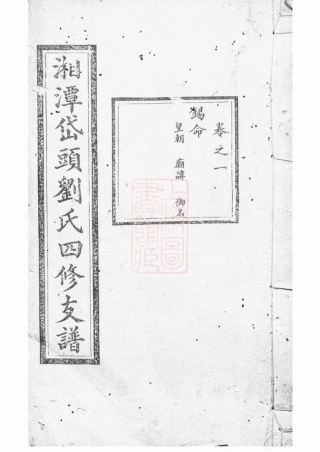 湘潭岱頭劉氏四修支譜
卷之一
錫命
皇朝 廟諱 御名